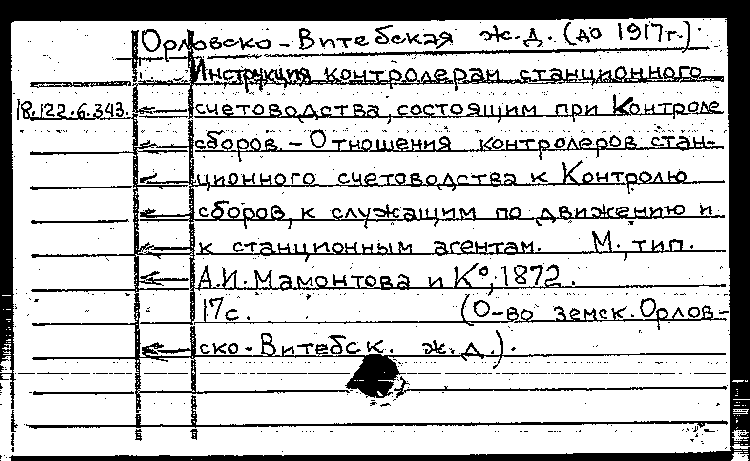 Орловско-Витебская ж.д. (до 1917г.).
Инструкция контролерам станционного
18.122.6.343. счетоводства, состоящим при Контроле
сборов. - Отношения контролеров стан-
ционного счетоводства к Контролю
сборов, к служащим по движению и
к станционным агентам. М., тип.
А.И. Мамонтова и Кº, 1872.
17с. (О-во земск. Орлов-
ско-Витебск. ж.д.).